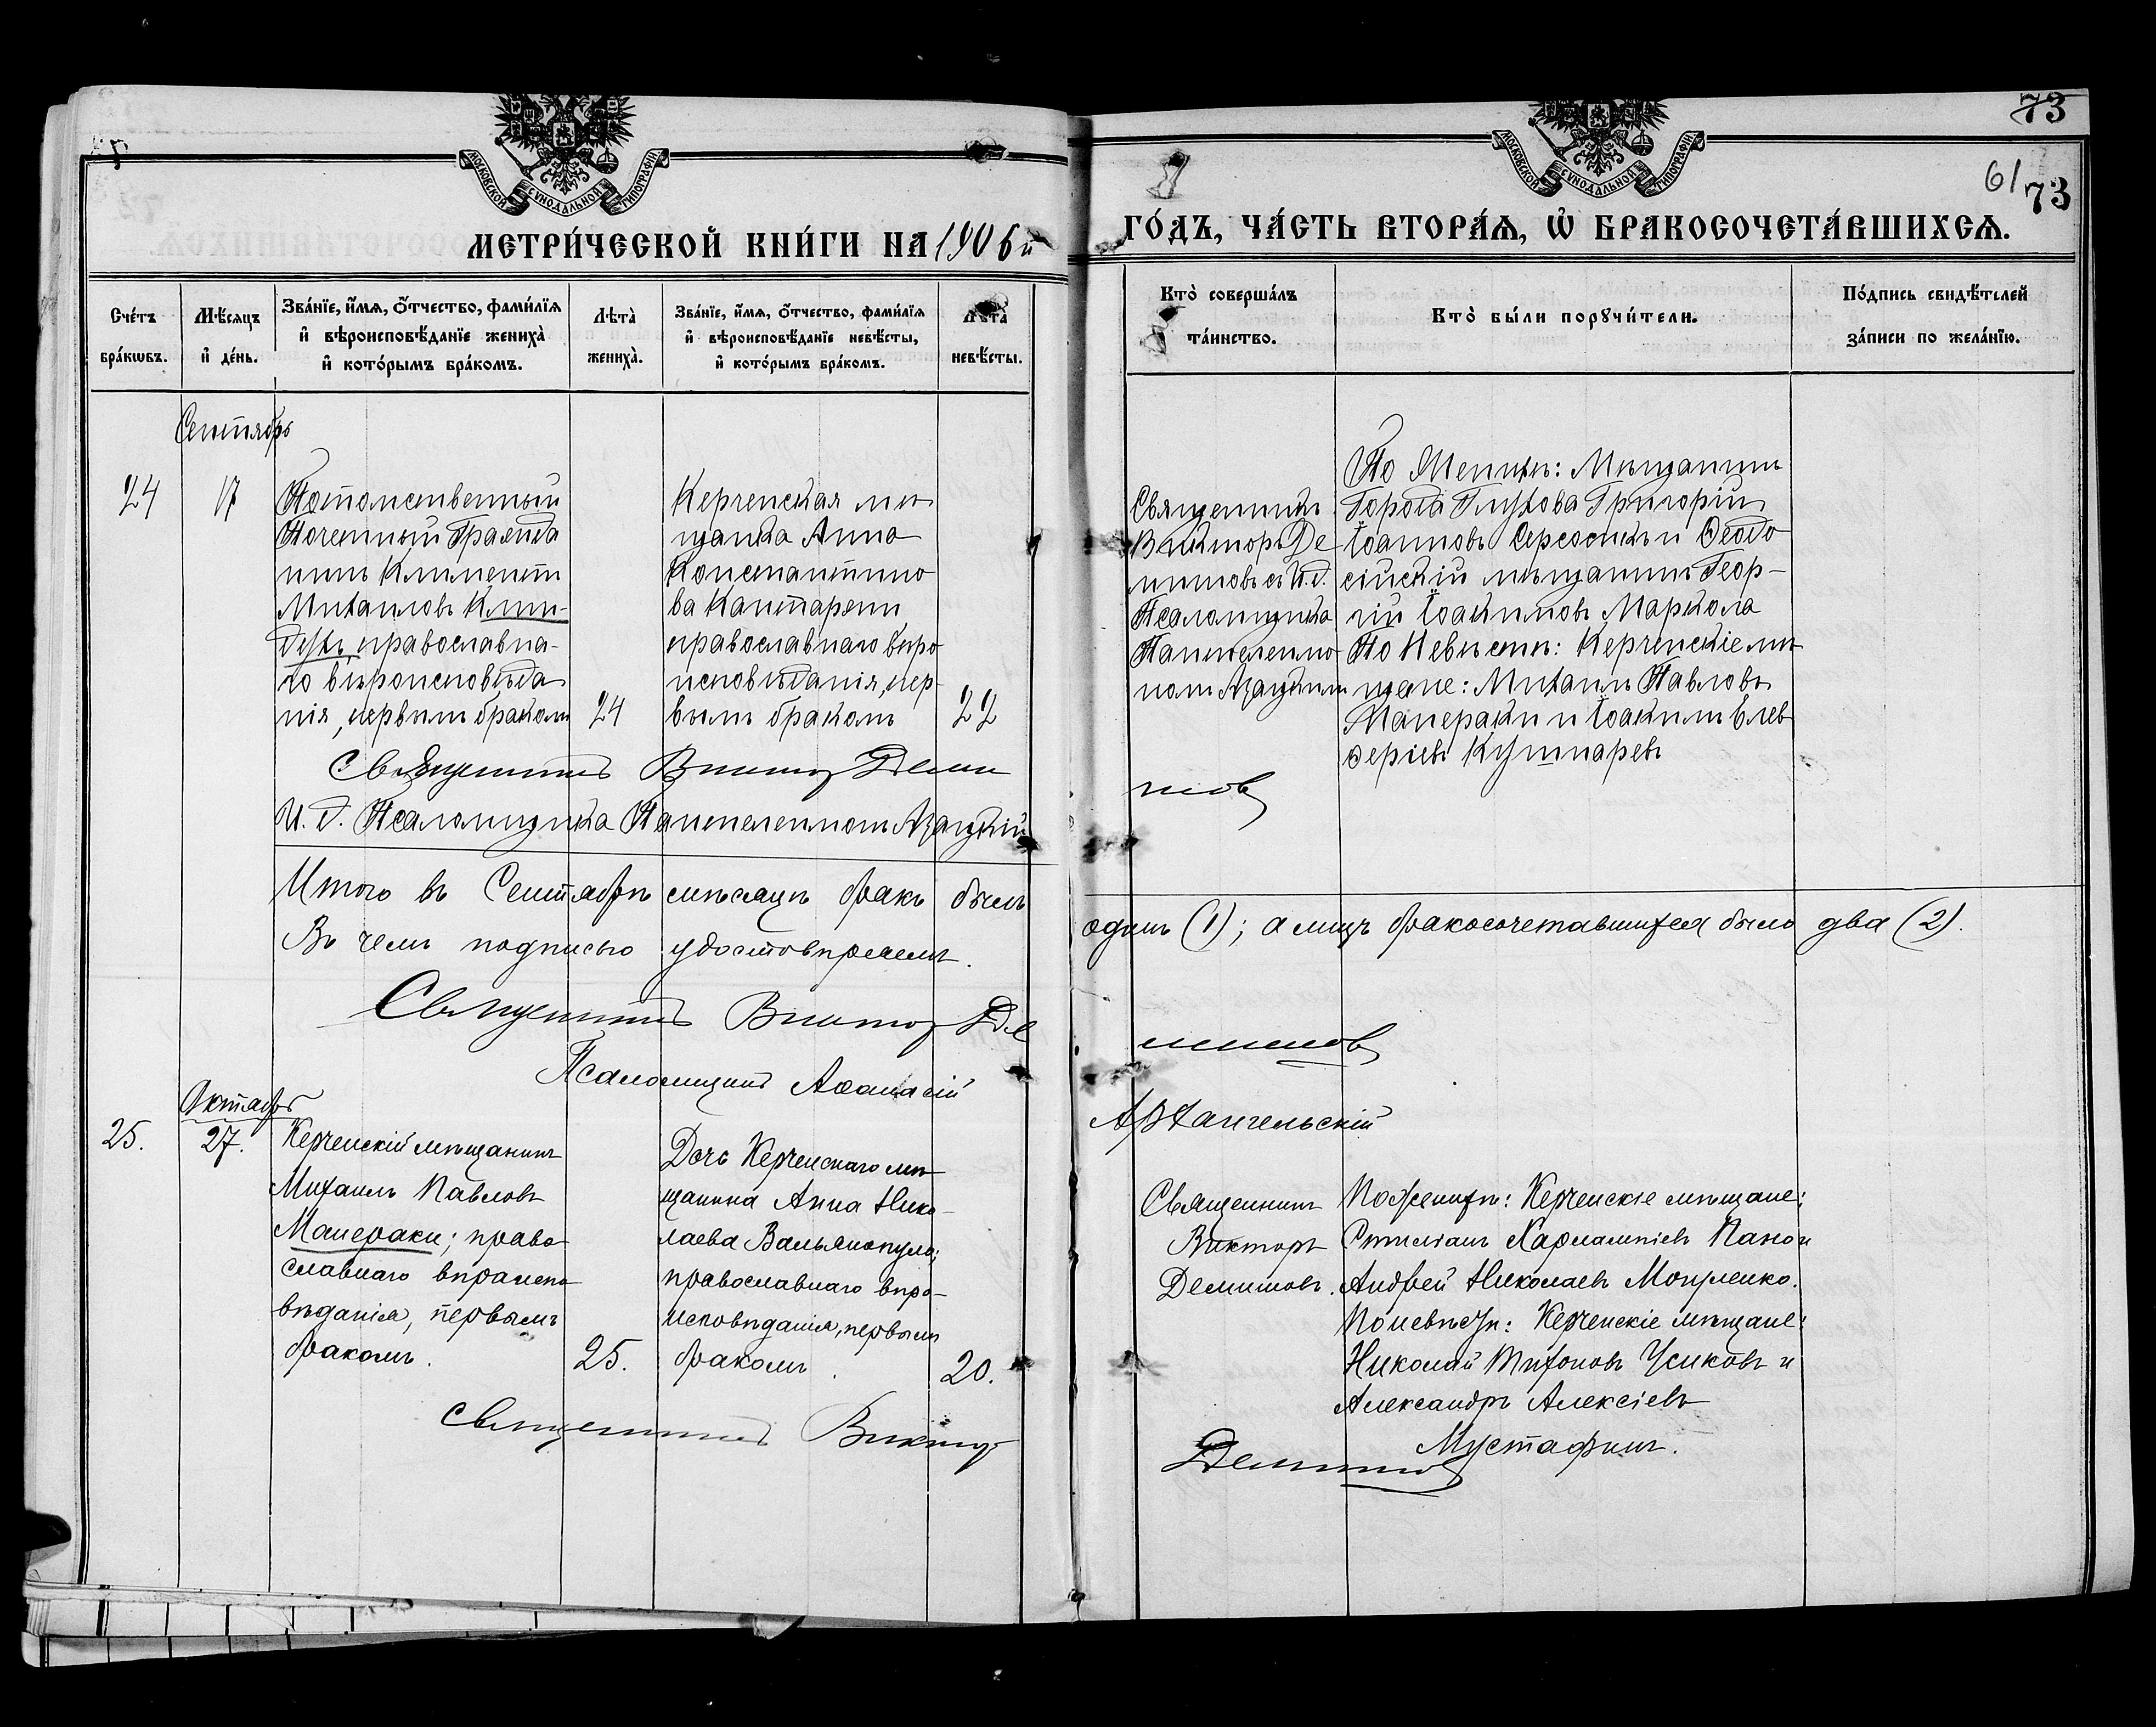 73
61
73
МОСКОВСКОЙ СѴНОДАЛЬНОЙ ТИПОГРАФІИ
МОСКОВСКОЙ СѴНОДАЛЬНОЙ ТИПОГРАФІИ
МЕТРИ́ЧЕСКОЙ КНИ́ГИ НА 1906й
ГО́ДЪ, ЧА́СТЬ ВТОРА́Ѧ, Ѡ҆ БРАКОСОЧЕТА́ВШИХСѦ.
Сче́тъ
бра́кѡвъ.
Мѣ́сѧцъ
и҆ де́нь.
Зва́нїе, и҆́мѧ, ѻ҆́тчество, фами́лїѧ
и҆ вѣроисповѣ́данїе жениха̀
и҆ кото́рымъ бра́комъ.
Лѣта̀
жениха̀.
Зва́нїе, и҆́мѧ, ѻ҆́тчество, фами́лїѧ
и҆ вѣроисповѣ́данїе невѣ́сты,
и҆ кото́рымъ бра́комъ.
Лѣта̀
невѣ́сты.
Кто̀ соверша́лъ
та́инство.
Кто̀ бы́ли порꙋчи́тели.
По́дпись свидѣ́телей
за́писи по жела́нїю.
Сентябрь
24
17
Потомственный
Почетный Гражда
нинъ Климентъ
Михаиловъ Клин-
духъ, православна-
го вѣроисповѣда
нія, первымъ бракомъ
24
Керченская мѣ
щанка Анна
Константино
ва Кантарени
православнаго вѣро
исповѣданія, пер-
вымъ бракомъ
22
Священникъ
Викторъ Де
митовъ съ И.д.
Псаломщика
Пантелеимо
номъ
По Женихѣ: Мѣщанинъ
Города Глухова Григорій
Іоанновъ и Ѳеодо
сійскій мѣщанинъ Геор-
гій Іоакимовъ Маркола
По Невѣстѣ: Керченскіе мѣ
щане: Михаилъ Павловъ
Манераки и Іоакимъ Елев
ѳеріевъ Кушнаревъ
Священникъ Викторъ Деми
товъ
И. д. Псаломщика Пантелеимонъ
Итого въ Сентябрѣ мѣсяцѣ бракъ былъ
одинъ (1); а лицъ бракосочетавшихся было два (2).
Въ чемъ подписью удостовѣряемъ.
Священникъ Викторъ Де
митовъ
Псаломщикъ Аѳанасій
Архангельскій
Октябрь
25.
27.
Керченскій мѣщанинъ
Михаилъ Павловъ
Манераки; право
славнаго вѣроиспо
вѣданія, первымъ
бракомъ.
25.
Дочь Керченскаго мѣ
щанина Анна Нико-
лаева Вальянопуло;
православнаго вѣро-
исповѣданія, первымъ
бракомъ.
20.
Священникъ
Викторъ
Демитовъ.
По женихѣ: Керченскіе мѣщане:
Стиліанъ Харлампіевъ Пано и
Андрей Николаевъ
По невѣстѣ: Керченскіе мѣщане:
Николай Тихоновъ Усиковъ и
Александръ Алексіевъ
Мустафинъ.
Священникъ Викторъ
Демитовъ